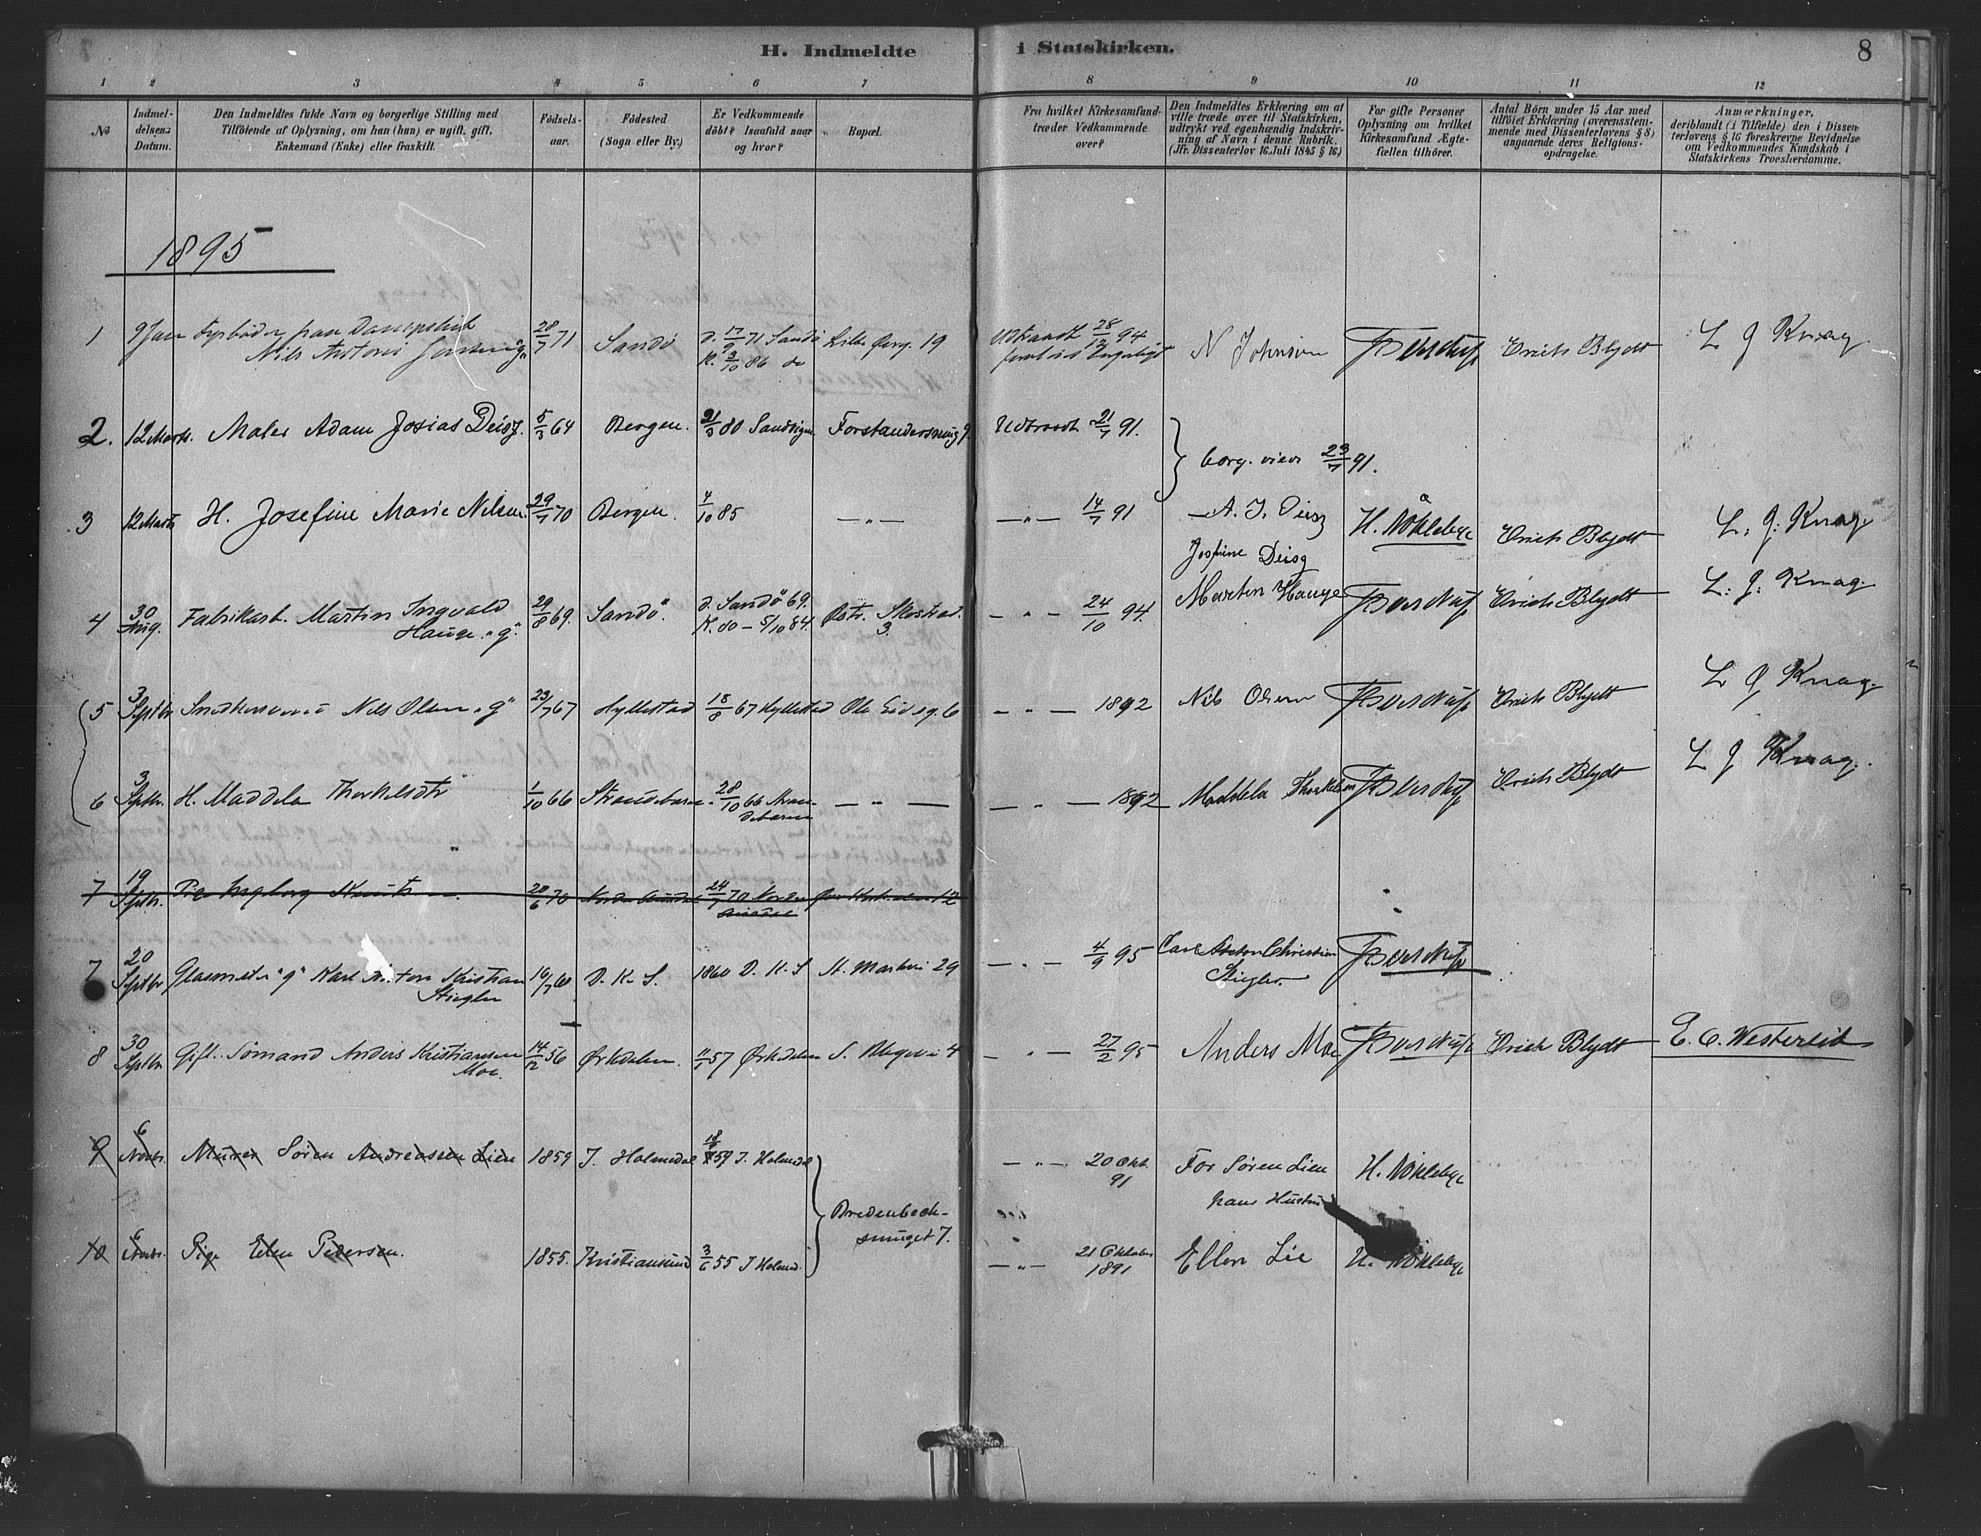 H. Indmeldte i Statskirken. 8
1 2 3 4 5 6 7 8 9 10 11 12
No
Indmel-
delsens
Datum.
Den Indmeldtes fulde Navn og borgerlige Stilling med
Tilföiende af Oplysning, om han (hun) er ugift, gift,
Enkemand (Enke) eller fraskilt.
Födsels-
aar.
Födested
(Sogn eller By.)
Er Vedkommende
döbt? Isaafald naar
og hvor?
Bopæl.
Fra hvilket Kirkesamfund
træder Vedkommende
over?
Den Indmeldtes Erklæring om at
ville træde over til Statskirken,
udtrykt ved egenhændig Indskriv-
ning af Navn i denne Rubrik.
(Jfr. Dissenterlov 16. Juli 1845 § 16.)
For gifte Personer
Oplysning om hvilket
Kirkesamfund Ægte-
fællen tilhører.
Antal Börn under 15 Aar med
tilföiet Erklæring (overensstem-
mende med Dissenterlovens § 8)
angaaende deres Religions-
opdragelse.
Anmærkninger,
deriblandt (i Tilfælde) den i Dissen-
terlovens § 16 foreskrevne Bevidnelse
om Vedkommendes Kundskab i
Statskirkens Troeslærdomme.
1895
1 9 Jan Fyrböder paa Dampskib 28/7 71 Sandö D. 17/9 71 Sandö Lille Øvreg. 19 Udtraadt 28/12 94 N Johnsen Erich Blydt L J Knag
Nils Antoni "g" K. 3/10 86 do
2. 12 Marts. Maler Adam Josias Deisz. 5/3 64 Bergen. 21/3 80 Sandvigen Forstandersmug 9. Udtraadt 21/7 91.
borg. viede 23/7 91.
3 12 Marts H. Josefine Marie Nilsen. 29/7 70 Bergen. 4/10 85 — " — — " — 14/7 91 A. J. Deisz H. Nökleby Erich Blydt L. J. Knag.
Josefine Deisz
4 30 Aug. Fabrikarb. Martin Ingvald 29/8 69. Sandö. D. Sandö 69. Østr. Skostræd. — " — 24/10 94. Martin Hauge Erich Blydt L. J. Knag.
Hauge. "g". K. do — 5/10 84. 3.
5 3 Septbr Nils Olsen "g" 23/7 67 Hyllestad 18/8 67 Hyllestad 6 — " — 1892 Nils Olsen Erich Blydt L J Knag.
6 3 Septbr. H. Maddela Thorkelsdtr 1/10 66 Strandebarm. 28/10 66 Stran- — " — — " — 1892 Maddela Thorkelsen Erich Blydt L J Knag.
debarm
7 19 Septbr. Pige Ingeborg 20/6 70 24/7 70 12
7 20 Septbr Glasmester "g" Karl Anton Kristian 16/7 60 D. K. S. 1860 D. K. S N. Markvei 29 — " — 4/9 95 Carl Anton Christian
Stiegler Stiegler.
8 30 Septbr Gift. Sömand Anders Kristiansen 14/12 56 Ørkdalen. 57 Ørkdalen S. 4 — " — 27/2 95 Anders Moe Erich Blydt E. C. Westerlid
Moe.
9 6 Novbr. Murer Sören Andreassen Lien 1859 I. Holmedal 18/ 59 I. Holmedal — " — 20 Okt. For Sören Lien H. Nökleby
91 hans Hustru
Bredenbech-
smuget 7.
10 6 Novbr. Pige Elen Pedersen. 1855. Kristiansund 3/6 55 I Holmed. — " — 21 Oktober Ellen Lie H. Nökleby
1891